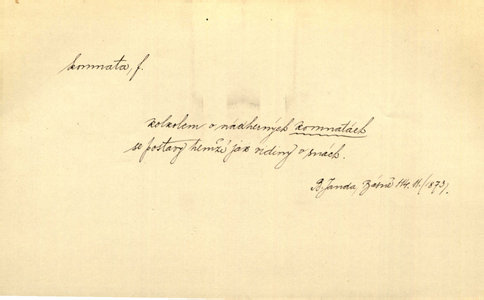 komnata, f.
kolkolem v nádherných komnatách
se postavy hemží jak vidiny v snách.
B. Janda, Básně 114. II. (1873).